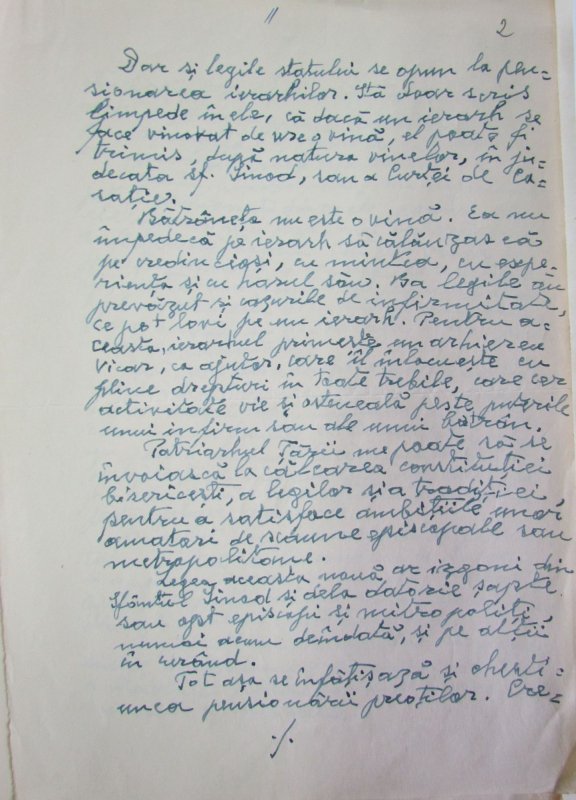 //
2
Dar și legile statului se opun la pen=
sionarea ierarhilor. Stă doar scris
limpede în ele, că dacă un ierarh se
face vinovat de vreo vină, el poate fi
trimis, după natura vinelor, în ju=
decata sf. Sinod, sau a Curței de Ca=
sație.
Bătrânețа nu este o vină. Ea nu
împedecă pe ierarh să călăuzească
pe credincioși, cu mintea, cu expe=
riența și cu harul său. Ba legile au
prevăzut și cazurile de infirmitate,
ce pot lovi pe un ierarh. Pentru a=
ceasta, ierarhul primește un arhiereu
vicar, ca ajutor, care îl înlocuește cu
pline drepturi în toate trebile, care cer
activitate vie și osteneală peste puterile
unui infirm sau ale unui bătrân.
Patriarhul Țării nu poate să se
învoiască la călcarea constituției
bisericești, a legilor și a tradiției,
pentru a satisface ambițiile unor
amatori de scaune episcopale sau
metropolitane.
Legea aceasta nouă ar izgoni din
Sfântul Sinod și dela datorie șapte
sau opt episcopi și mitropoliți,
numai acum deîndată, și pe alții
în curând.
Tot așa se înfățișază și chesti=
unea pensionării preoților. Cre=
./.